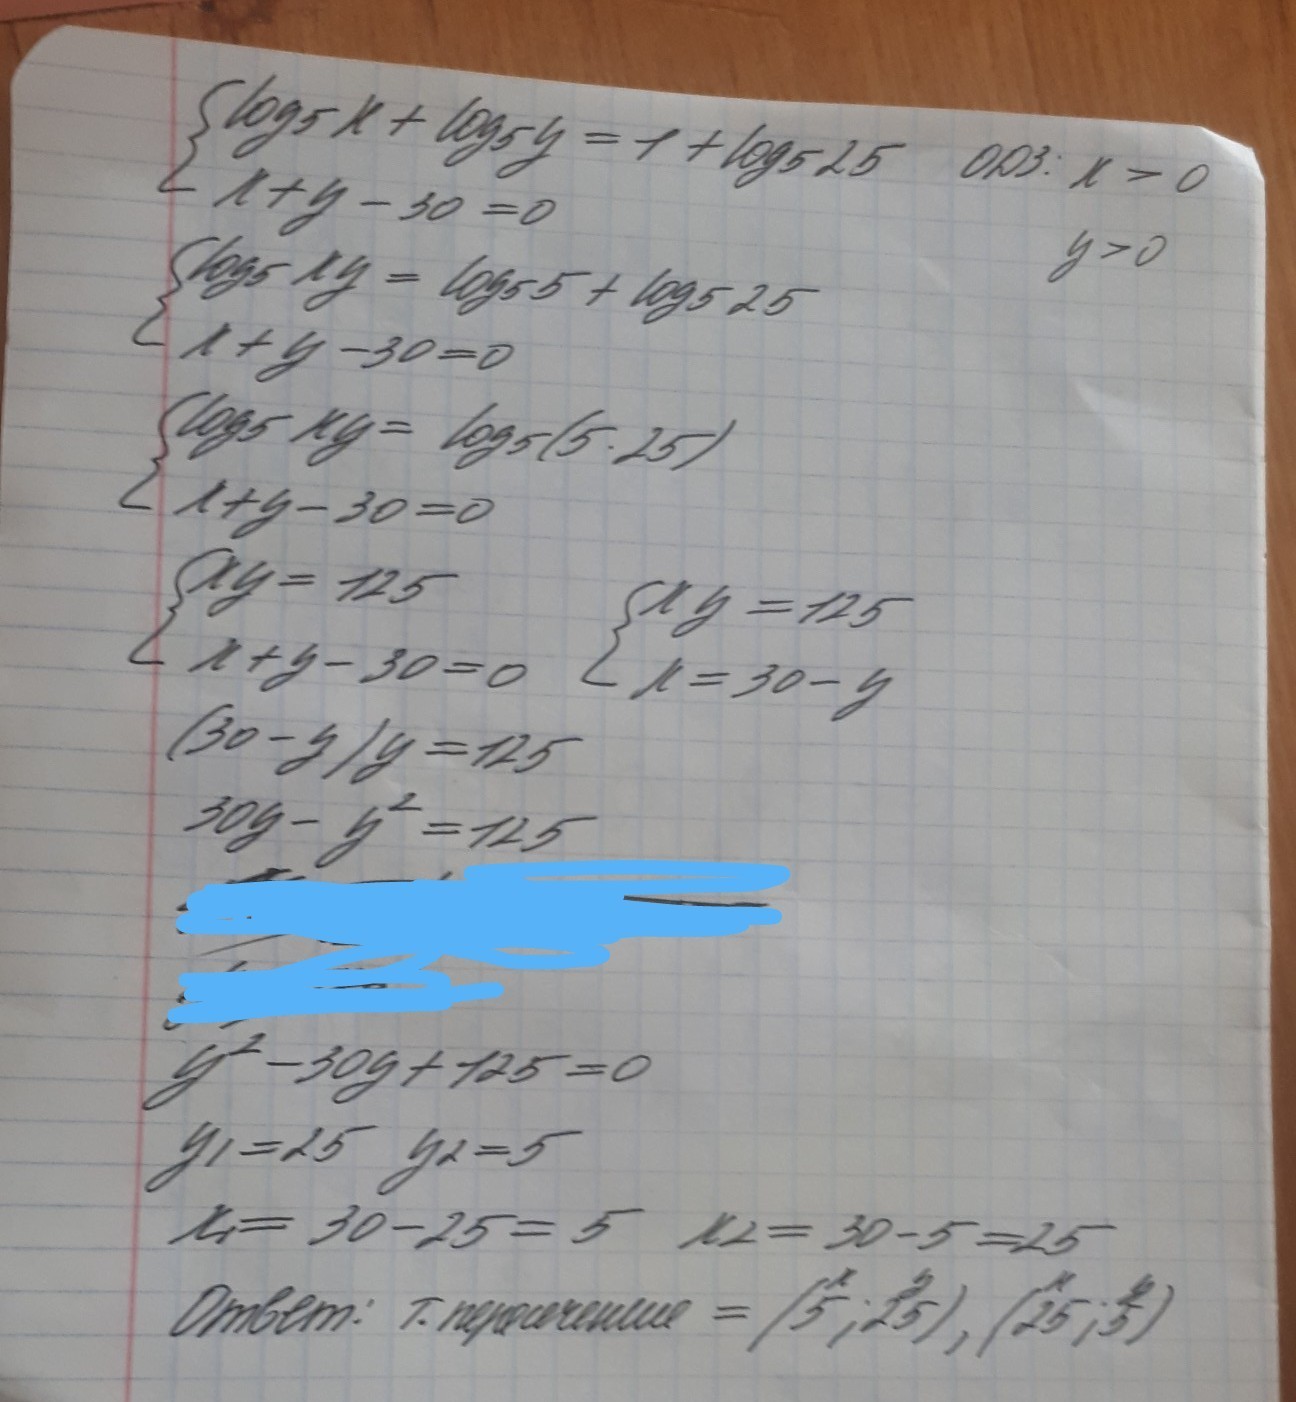 log₅x + log₅y = 1 + log₅25 ОДЗ: x > 0
x + y - 30 = 0
y > 0
log₅xy = log₅5 + log₅25
x + y - 30 = 0
log₅xy = log₅(5·25)
x + y - 30 = 0
xy = 125 xy = 125
x + y - 30 = 0 x = 30 - y
(30 - y)y = 125
30y - y² = 125
y² - 30y + 125 = 0
y₁ = 25 y₂ = 5
x₁ = 30 - 25 = 5 x₂ = 30 - 5 = 25
x y x y
Ответ: т. пересечение = (5; 25), (25; 5)